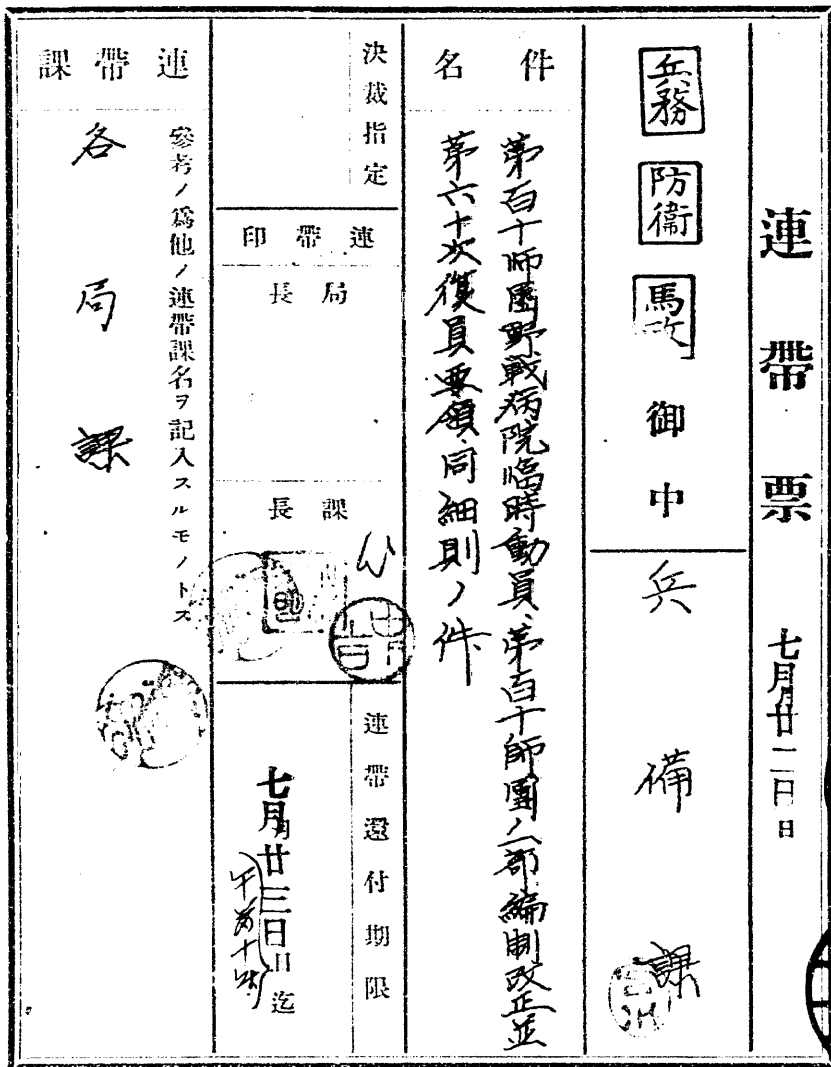 連帶票
七月廿二日
兵務
防衞
馬政
御中
兵備課
件名
第百十師團野戰病院臨時動員、第百十師團ノ一部編制改正並
第六十次復員要領、同細則ノ件
決裁指定
連帶印
局長
課長
連帶還付期限
七月廿三日迄
午前十時
連帶課
參考ノ爲他ノ連帶課名ヲ記入スルモノトス
各局課